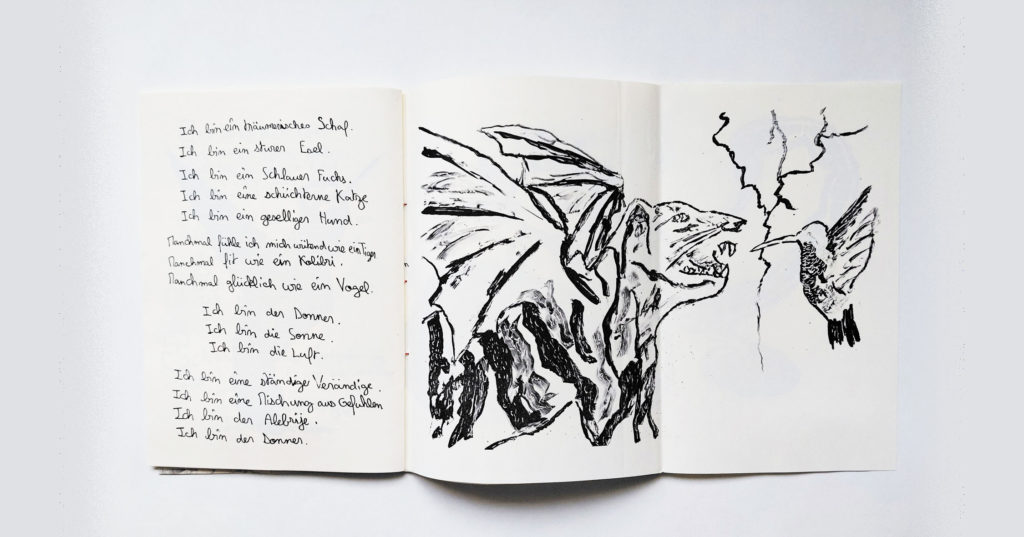 Ich bin ein träumerisches Schaf.
Ich bin ein sturer Esel.
Ich bin ein Schlauer Fuchs.
Ich bin eine schüchterne Katze
Ich bin ein geselliger Hund.
Manchmal fühle ich mich wütend wie ein Tiger
Manchmal fit wie ein Kolibri.
Manchmal glücklich wie ein Vogel.
Ich bin der Donner.
Ich bin die Sonne.
Ich bin die Luft.
Ich bin eine ständige
Ich bin eine Mischung aus Gefühlen
Ich bin der Alebrije.
Ich bin der Donner.